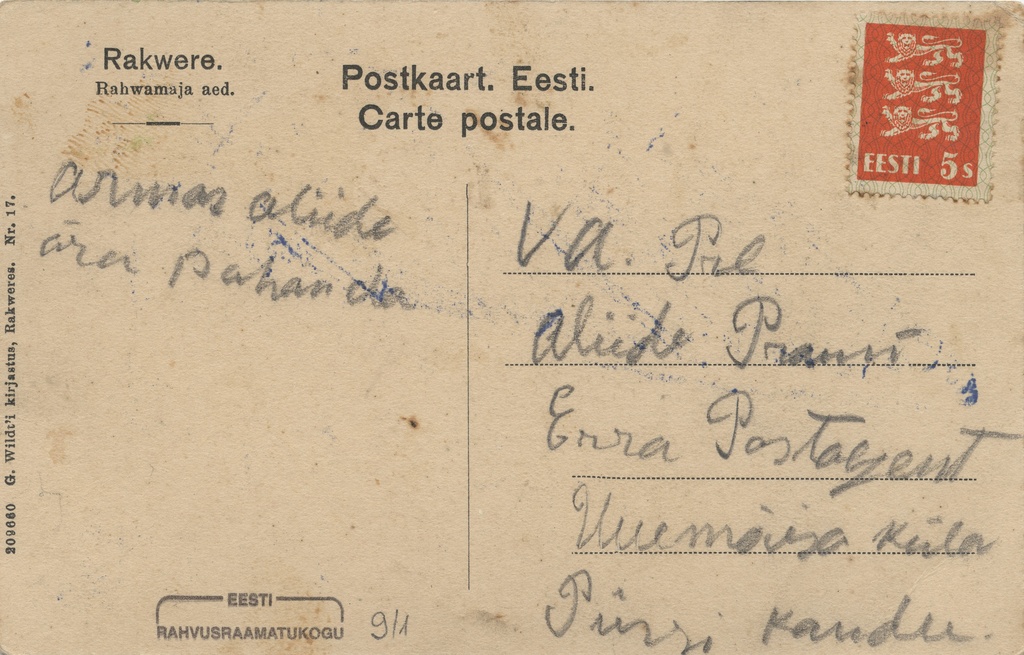 Rakwere.
Rahwamaja aed.
Postkaart. Eesti.
Carte postale.
EESTI 5s
Armas aliide
ära pahanda
V A. Prl
Aliide
Erra Postagent
Uuemõisa küla
Pürji kaudu.
209660 G. Wildt'i kirjastus, Rakweres. Nr. 17.
EESTI
RAHVUSRAAMATUKOGU
9/1